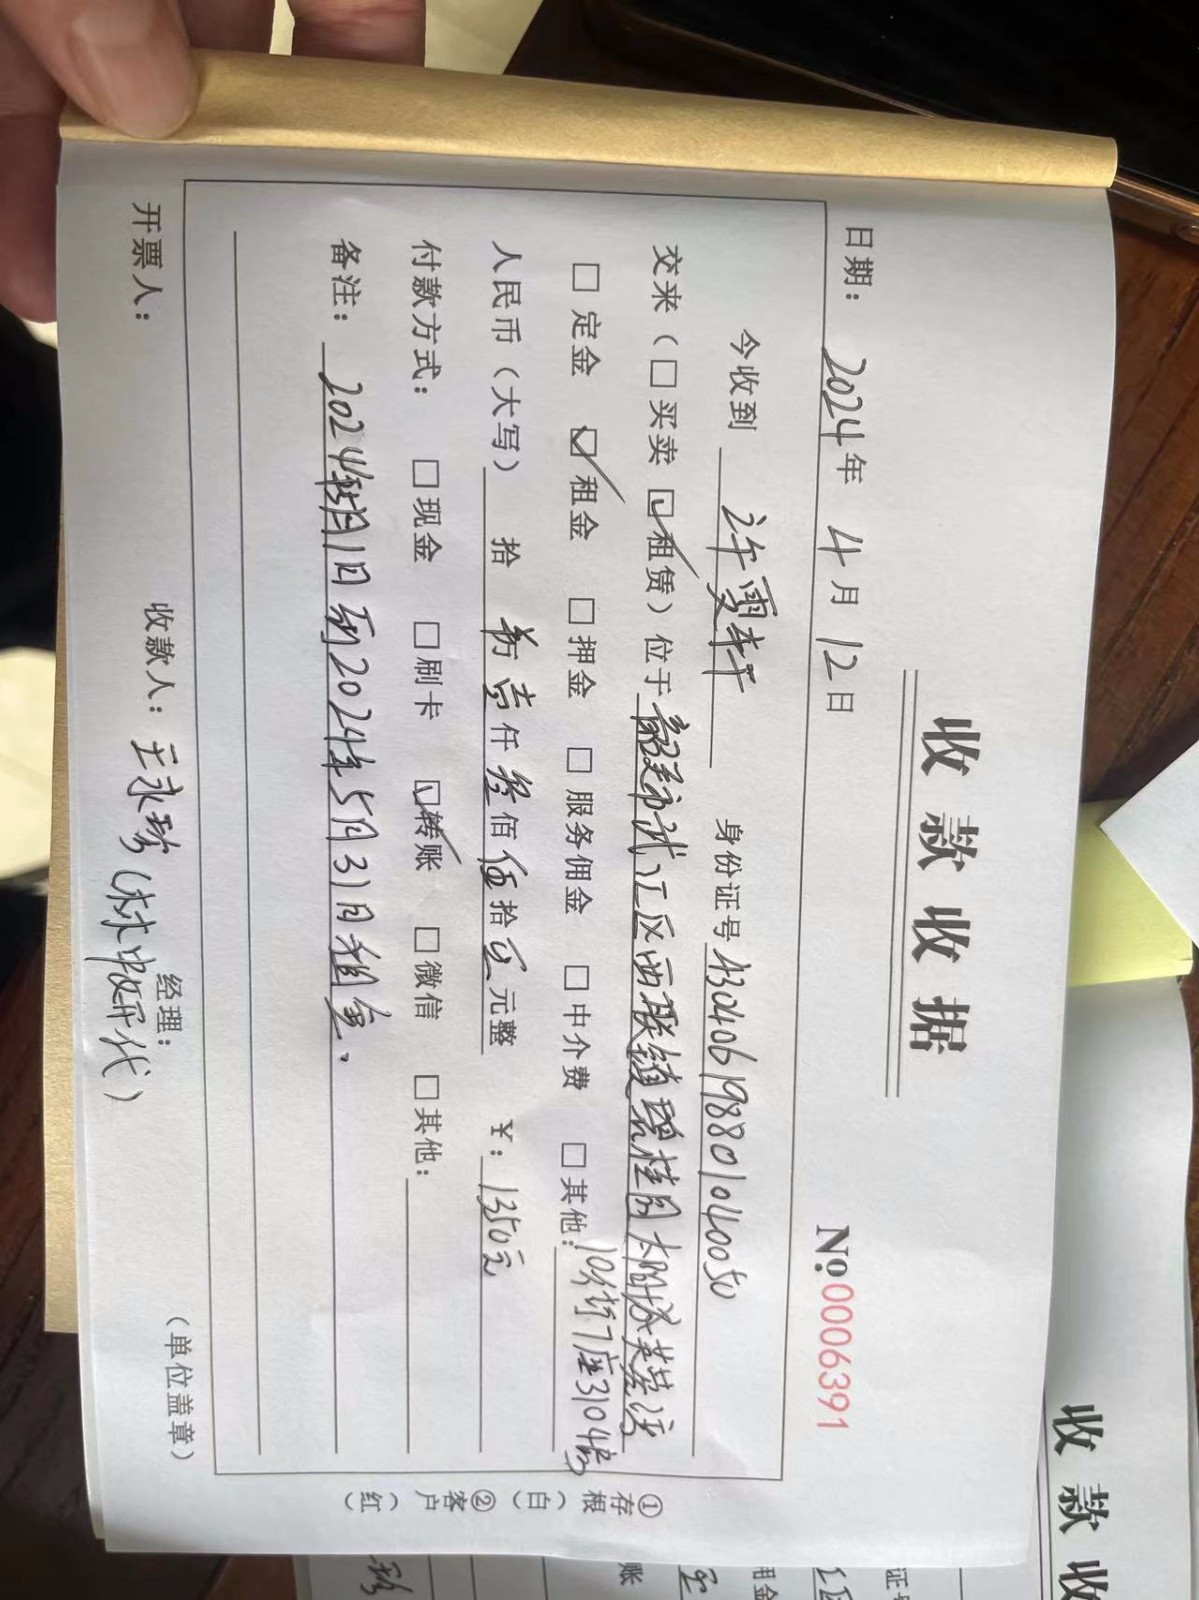 收款收据
№ 0006391
日期：2024年 4月 12日
今收到 许雯轩 身份证号 430406198801040050
交来（□买卖 ☑租赁）位于 韶关市武江区西联镇碧桂园太阳城芙蓉湾
□定金 ☑租金 □押金 □服务佣金 □中介费 □其他：10街7座3104房
人民币（大写） 拾 万 壹 仟 叁 佰 伍 拾 元整 ¥：1350元
付款方式： □现金 □刷卡 ☑转账 □微信 □其他：
备注：2024年5月1日到2024年5月31日租金.
开票人： 收款人：王永珍（林中妍代） 经理： （单位盖章）
①存根（白）②客户（红）
收款收